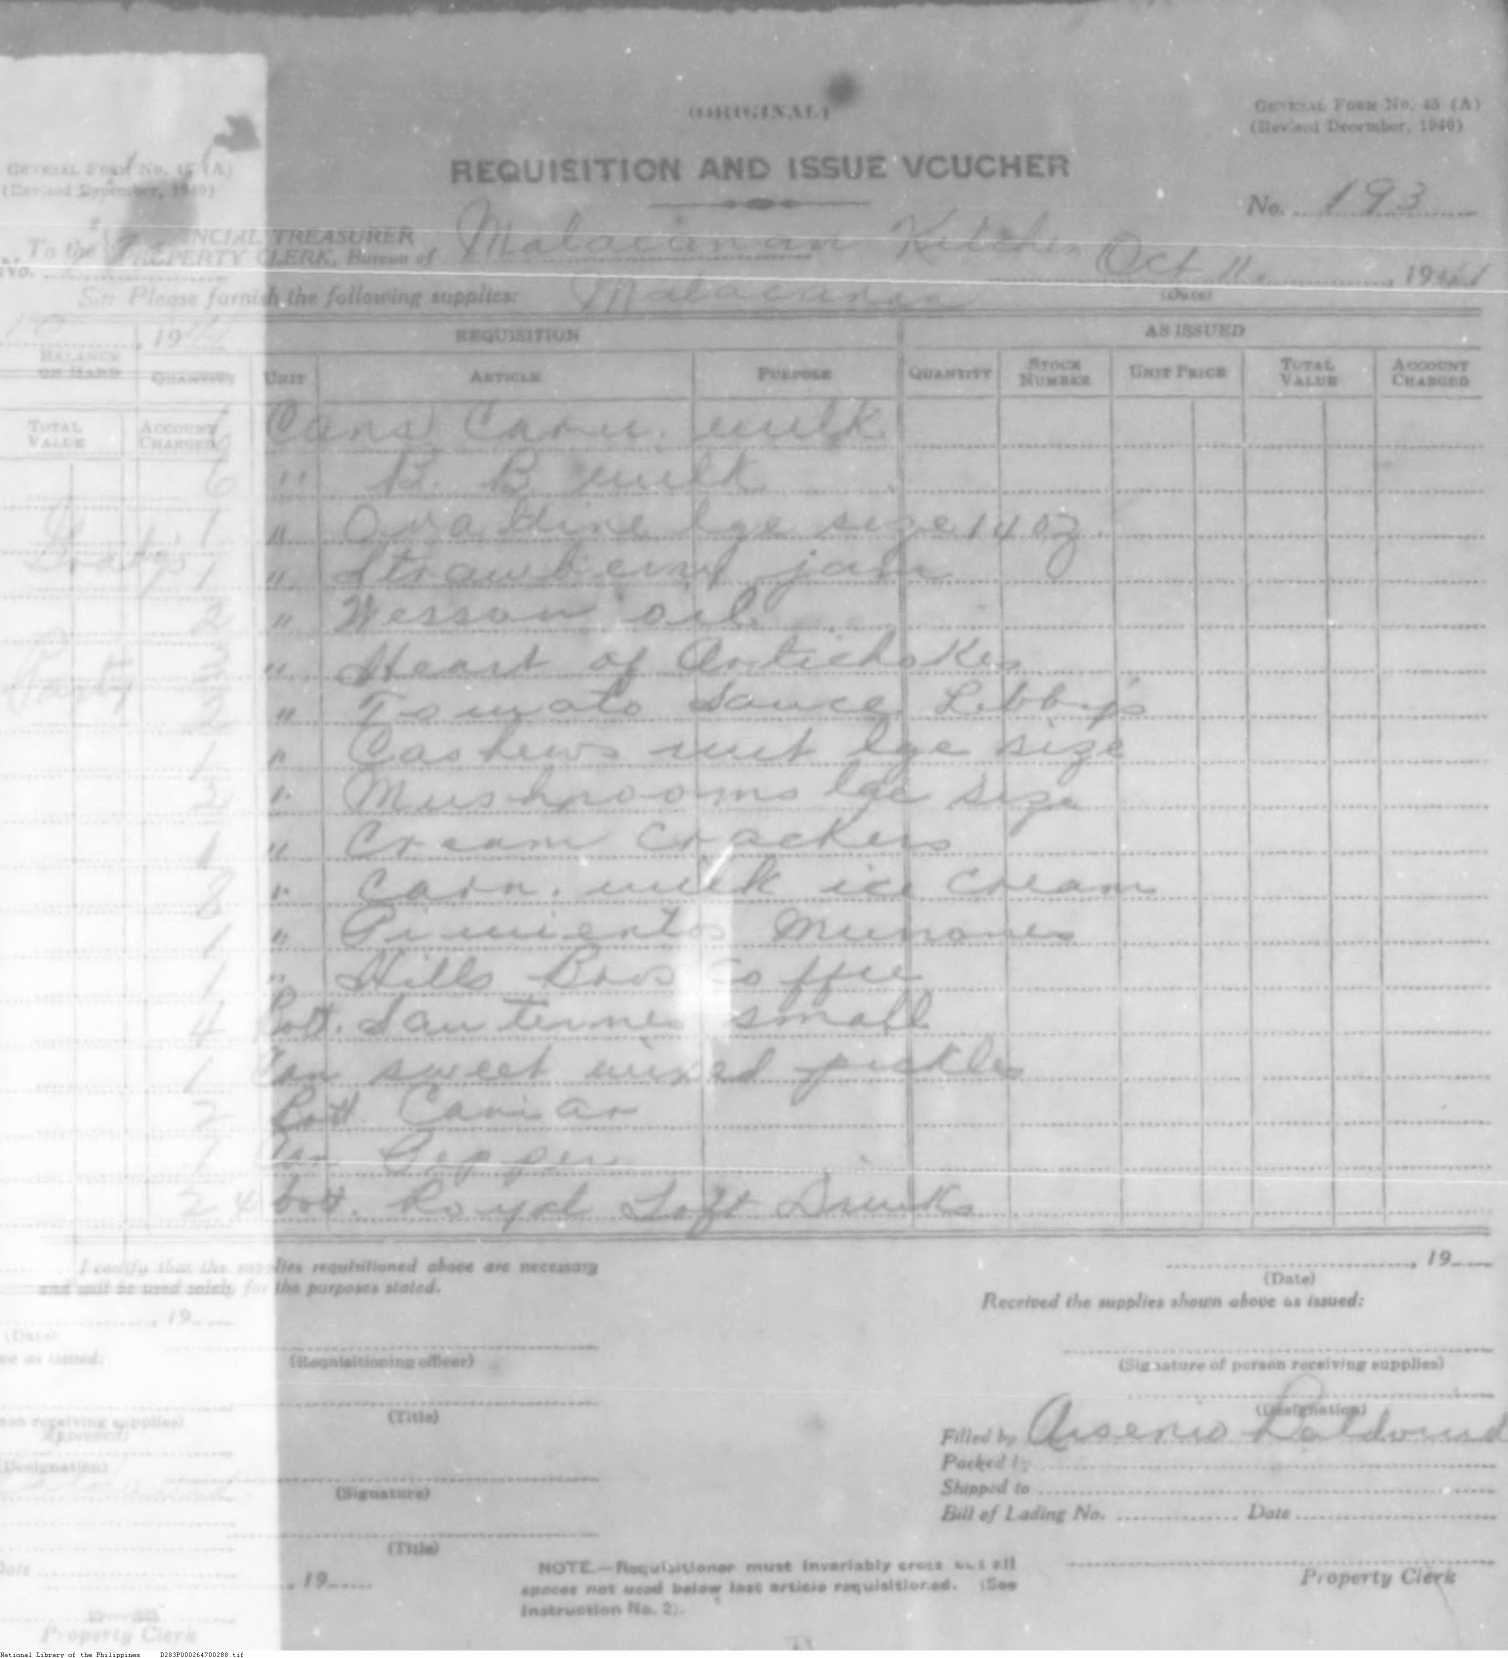 (ORIGINAL)
GENERAL FORM NO. 45 (A)
(Revised December, 1940)
GENERAL FORM NO. 45 (A)
REQUISITION AND ISSUE VOUCHER
No. 193
To the
PROVINCIAL TREASURER
PROPERTY CLERK, Bureau of Malacanan Kitchen Oct 11, 1941
(Date)
Sir: Please furnish the following supplies: Malacanan
, 19
REQUISITION
AS ISSUED
BALANCE ON HAND QUANTITY UNIT ARTICLE PURPOSE QUANTITY STOCK NUMBER UNIT PRICE TOTAL VALUE ACCOUNT CHARGED
TOTAL VALUE ACCOUNT CHARGED
6 Cans Carn. milk
6 " B. B. milk
1 " Ovaltine lge size 14 oz.
1 " Strawberry jam
2 " Wesson oil
3 " Heart of Artichokes
2 " Tomato Sauce Libby's
1 " Cashews nut lge size
2 " Mushrooms lge size
1 " Cream Crackers
8 " Carn. milk ice cream
1 " Pimientos Murones
1 " Hills Bros Coffee
4 Bott. Sauternes small
1 Can sweet mixed pickles
2 Bott. Caviar
1 Can Pepper
24 bott. Royal Soft Drinks
I certify that the supplies requisitioned above are necessary
and will be used solely for the purposes stated.
, 19
(Date)
Received the supplies shown above as issued:
, 19
(Date)
(Requisitioning officer)
(Signature of person receiving supplies)
(Title)
(Designation)
receiving supplies)
(Designation)
Filled by Arsenio
Packed by
(Signature)
Shipped to
Bill of Lading No. Date
(Title)
Date
, 19
NOTE.—Requisitioner must invariably cross out all
spaces not used below last article requisitioned. (See
Instruction No. 2).
Property Clerk
Property Clerk
National Library of the Philippines D283P000264700288.tif